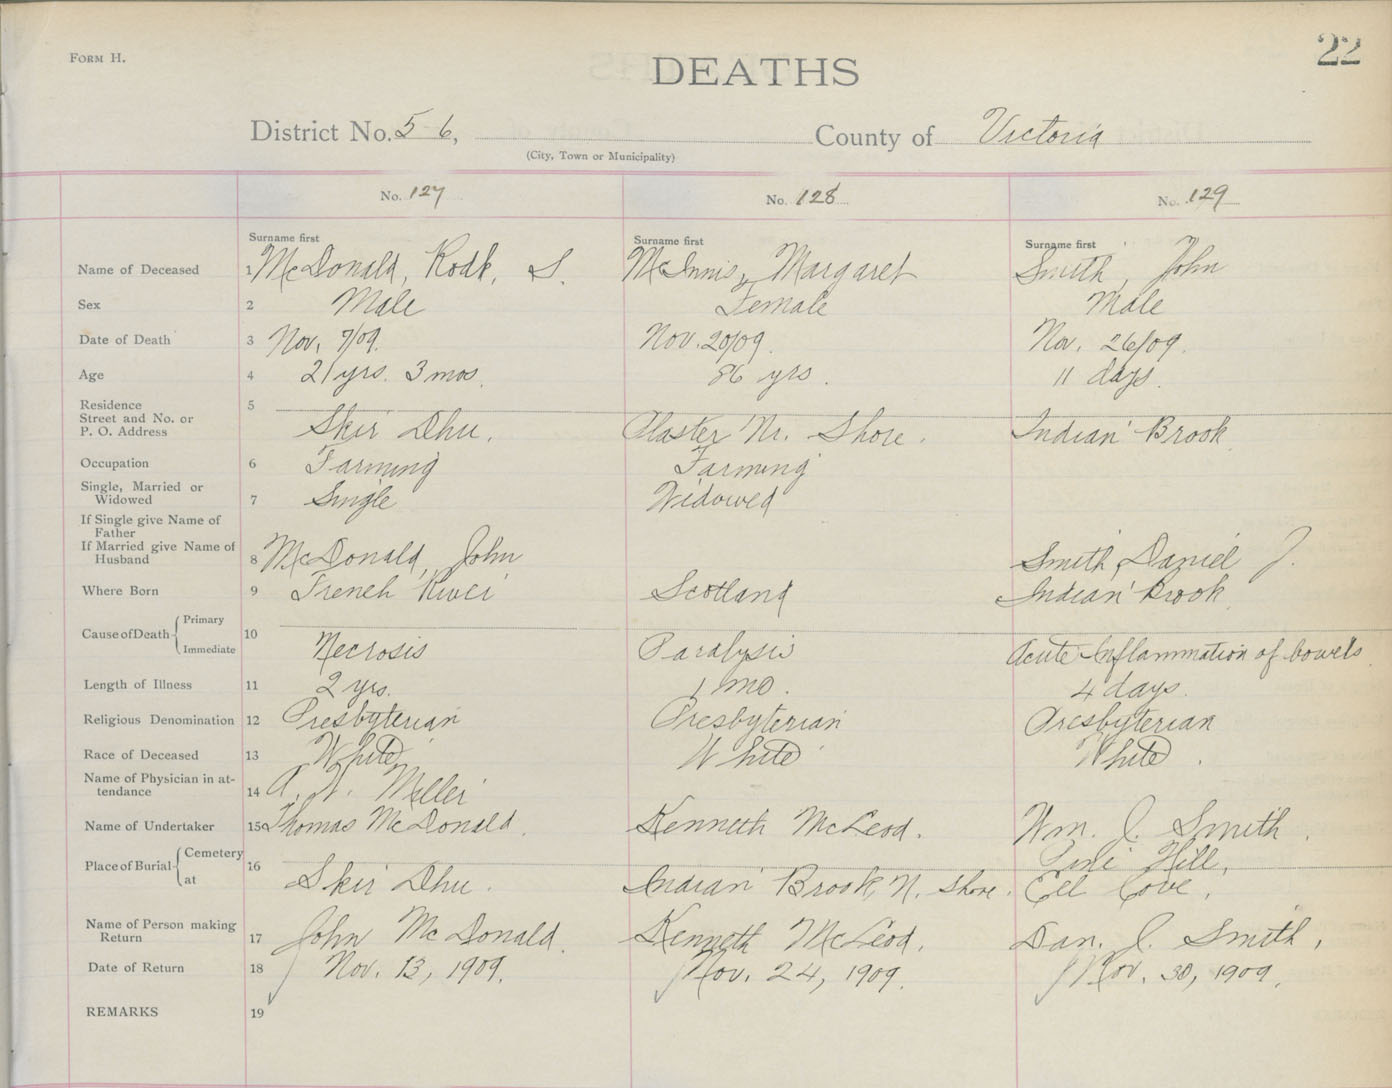 FORM H.
22
DEATHS
District No. 5-6, County of Victoria
(City, Town or Municipality)
No. 127 No. 128 No. 129
Surname first Surname first Surname first
Name of Deceased 1 McDonald, Rodk, S. McInnis, Margaret Smith, John
Sex 2 Male Female Male
Date of Death 3 Nov. 7/09. Nov. 20/09. Nov. 26/09.
Age 4 21 yrs. 3 mos. 86 yrs. 11 days.
Residence 5
Street and No. or
P. O. Address Skir Dhu. Plaster Nr. Shore. Indian Brook
Occupation 6 Farming Farming
Single, Married or
Widowed 7 Single Widowed
If Single give Name of
Father
If Married give Name of
Husband 8 McDonald, John Smith, Daniel J.
Where Born 9 French River Scotland Indian Brook
Cause of Death Primary 10
Immediate Necrosis Paralysis Acute Inflammation of bowels.
Length of Illness 11 2 yrs. 1 mo. 4 days.
Religious Denomination 12 Presbyterian Presbyterian Presbyterian
Race of Deceased 13 White White White.
Name of Physician in at-
tendance 14 Miller
Name of Undertaker 15 Thomas McDonald. Kenneth McLeod. Wm. J. Smith.
Place of Burial Cemetery 16 Hill,
at Skir Dhu. Indian Brook, N. Shore. Cove.
Name of Person making
Return 17 John McDonald. Kenneth McLeod. Dan. J. Smith,
Date of Return 18 Nov. 13, 1909. Nov. 24, 1909. Nov. 30, 1909.
REMARKS 19